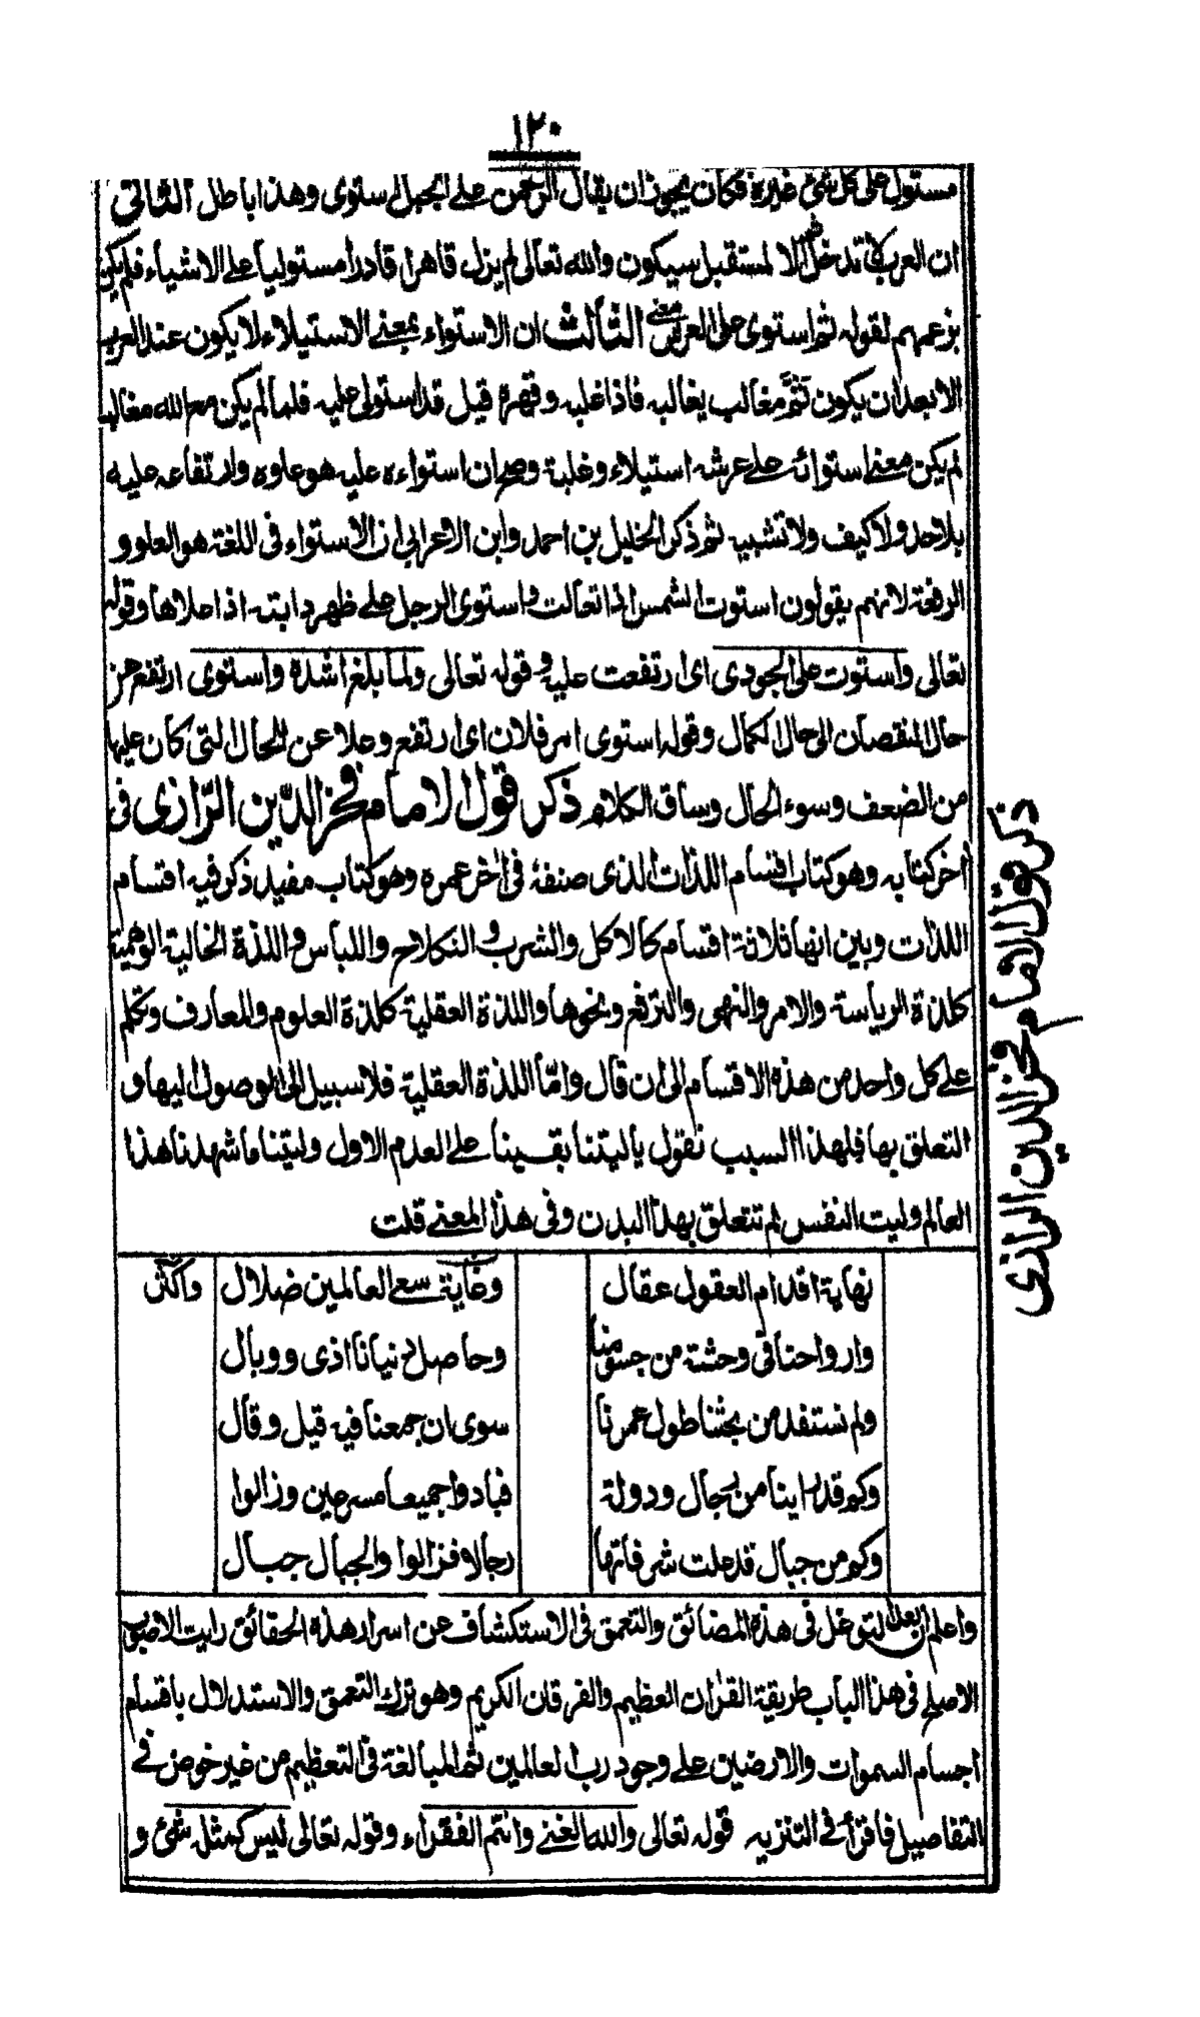 ١٢٠
مستول على كل شئ غيره فكان يجوز ان يقال الرحمن على الجبل استوى وهذا باطل الثانى
ان العرب لا تدخل ثم الا لمستقبل سيكون والله تعالى لم يزل قاهرا قادرا مستوليا على الاشياء فلم يكن
بزعمهم لقوله ثم استوى على العرش معنى الثالث ان الاستواء بمعنى الاستيلاء لا يكون عند العرب
الا بعد ان يكون ثم مغالب يغالبه فاذا غلبه وقهره قيل قد استولى عليه فلما لم يكن مع الله مغالب
لم يكن معنى استوائه على عرشه استيلاء وغلبة وصح ان استواءه عليه هو علوه وارتفاعه عليه
بلا حد ولا كيف ولا تشبيه ثم ذكر الخليل بن احمد وابن الاعرابى ان الاستواء فى اللغة هو العلو و
الرفعة لانهم يقولون استوت الشمس اذا تعالت واستوى الرجل على ظهر دابته اذا علاها وقوله
تعالى واستوت على الجودى اى ارتفعت عليه وقوله تعالى ولما بلغ اشده واستوى ارتفع عن
حال النقصان الى حال الكمال وقوله استوى امر فلان اى ارتفع وعلا عن الحال التى كان عليها
من الضعف وسوء الحال وساق الكلام ذكر قول الامام فخر الدين الرازى فى
اخر كتابه وهو كتاب اقسام اللذات الذى صنفه فى اخر عمره وهو كتاب مفيد ذكر فيه اقسام
اللذات وبين انها ثلاثة اقسام كالاكل والشرب والنكاح واللباس واللذة الخالية الوهمية
كلذة الرياسة والامر والنهى والترفع ونحوها واللذة العقلية كلذة العلوم والمعارف وتكلم
على كل واحد من هذه الاقسام الى ان قال واما اللذة العقلية فلا سبيل الى الوصول اليها و
التعلق بها فلهذا السبب نقول ياليتنا بقينا على العدم الاول وليتنا ما شهدنا هذا
العالم وليت النفس لم تتعلق بهذا البدن وفى هذا المعنى قلت
نهاية اقدام العقول عقال وغاية سعى العالمين ضلال واكثر
وارواحنا فى وحشة من جسومنا وحاصل دنيانا اذى ووبال
ولم نستفد من بحثنا طول عمرنا سوى ان جمعنا فيه قيل وقال
وكم قد راينا من رجال ودولة فبادوا جميعا مسرعين وزالوا
وكم من جبال قد علت شرفاتها رجال فزالوا والجبال جبال
واعلم ان بعد التوغل فى هذه المضائق والتعمق فى الاستكشاف عن اسرار هذه الحقائق رايت الاصوب
الاصلح فى هذا الباب طريقة القرآن العظيم والفرقان الكريم وهو ترك التعمق والاستدلال باقسام
اجسام السموات والارضين على وجود رب العالمين ثم المبالغة فى التعظيم من غير خوض فى
التفاصيل فاقرأ فى التنزيه قوله تعالى والله الغنى وانتم الفقراء وقوله تعالى ليس كمثله شئ و
ذكر قول الامام فخر الدين الرازى